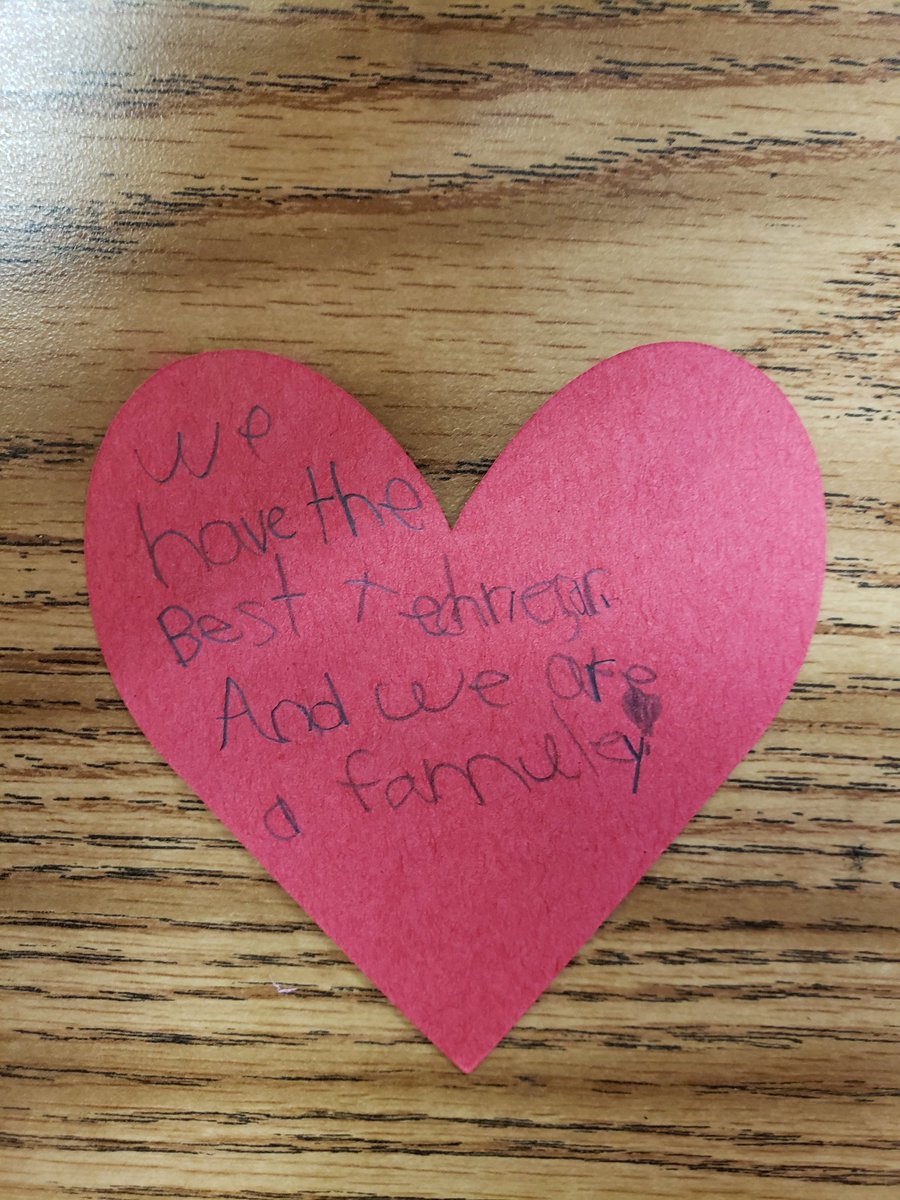 We
have the
Best
And we are
a famuley